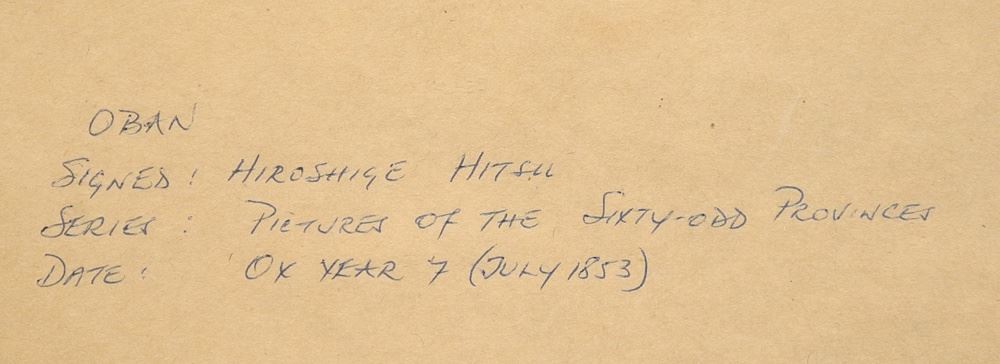 OBAN
SIGNED: HIROSHIGE HITSU
SERIES: PICTURES OF THE SIXTY-ODD PROVINCES
DATE: OX YEAR 7 (JULY 1853)